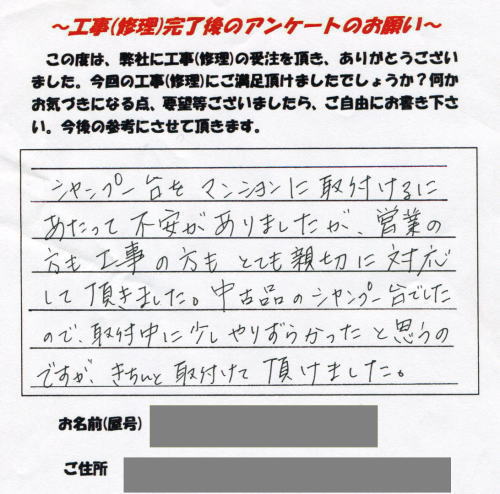 ～工事(修理)完了後のアンケートのお願い～
この度は、弊社に工事(修理)の受注を頂き、ありがとうござい
ました。今回の工事(修理)にご満足頂けましたでしょうか？何か
お気づきになる点、要望等ございましたら、ご自由にお書き下さ
い。今後の参考にさせて頂きます。
シャンプー台を マンションに 取付けるに
あたって 不安が ありましたが、営業の
方も 工事の方も とても 親切に 対応
して 頂きました。中古品のシャンプー台でした
ので、取付中に少しやりずらかったと思うの
ですが、きちんと 取付けて 頂けました。
お名前(屋号)
ご住所